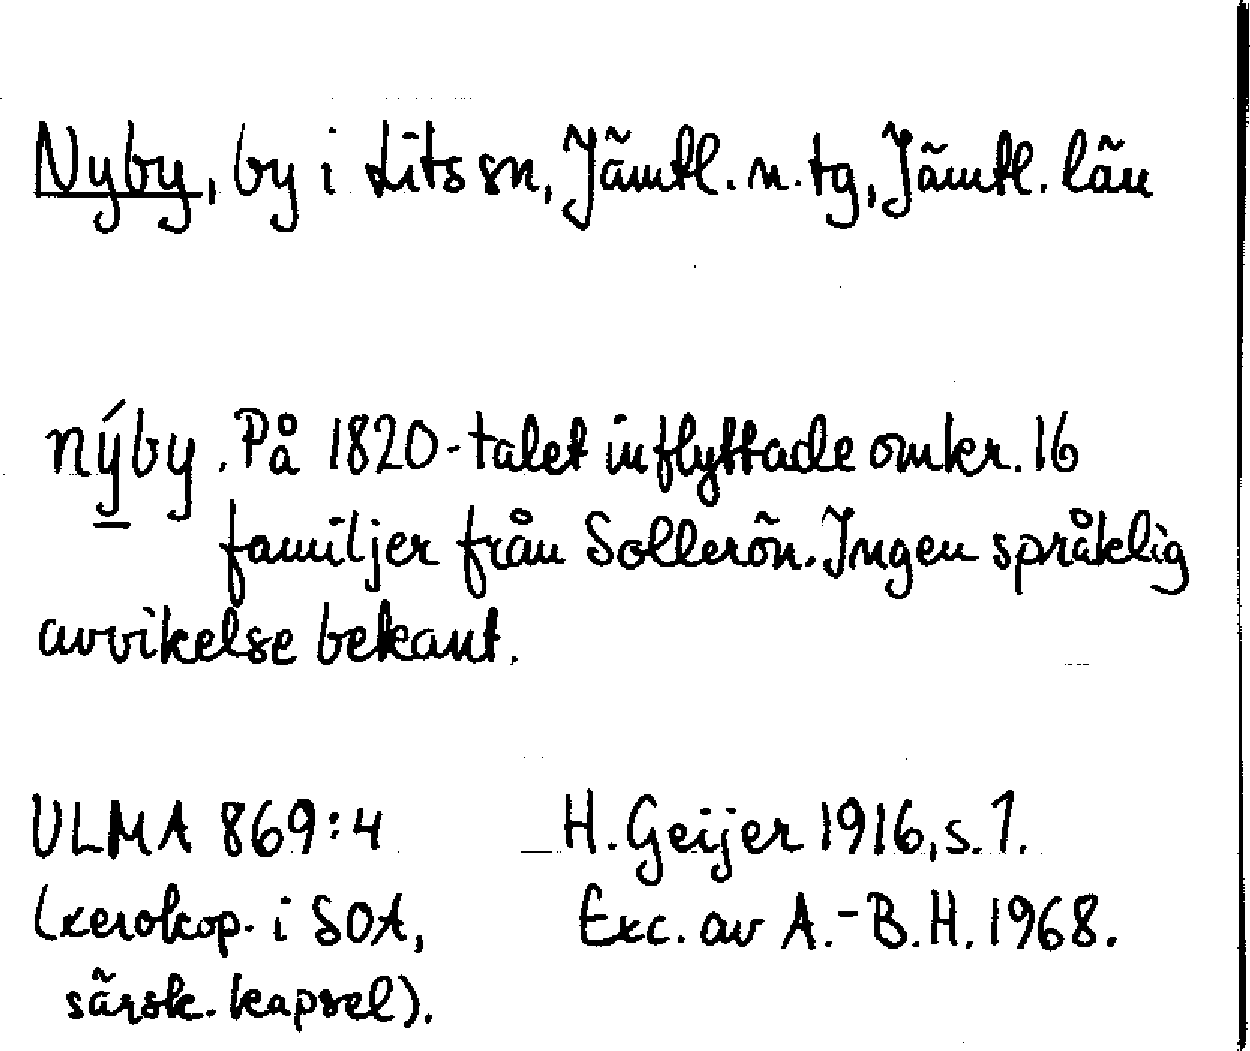 Nyby, by i Lits sn, Jämtl. n. tg, Jämtl. län
nýby. På 1820-talet inflyttade omkr. 16
familjer från Sollerön. Ingen språklig
avvikelse bekant.
ULMA 869:4 H. Geijer 1916, s. 1.
(xerokop. i SOA, Exc. av A.-B. H. 1968.
särsk. kapsel).